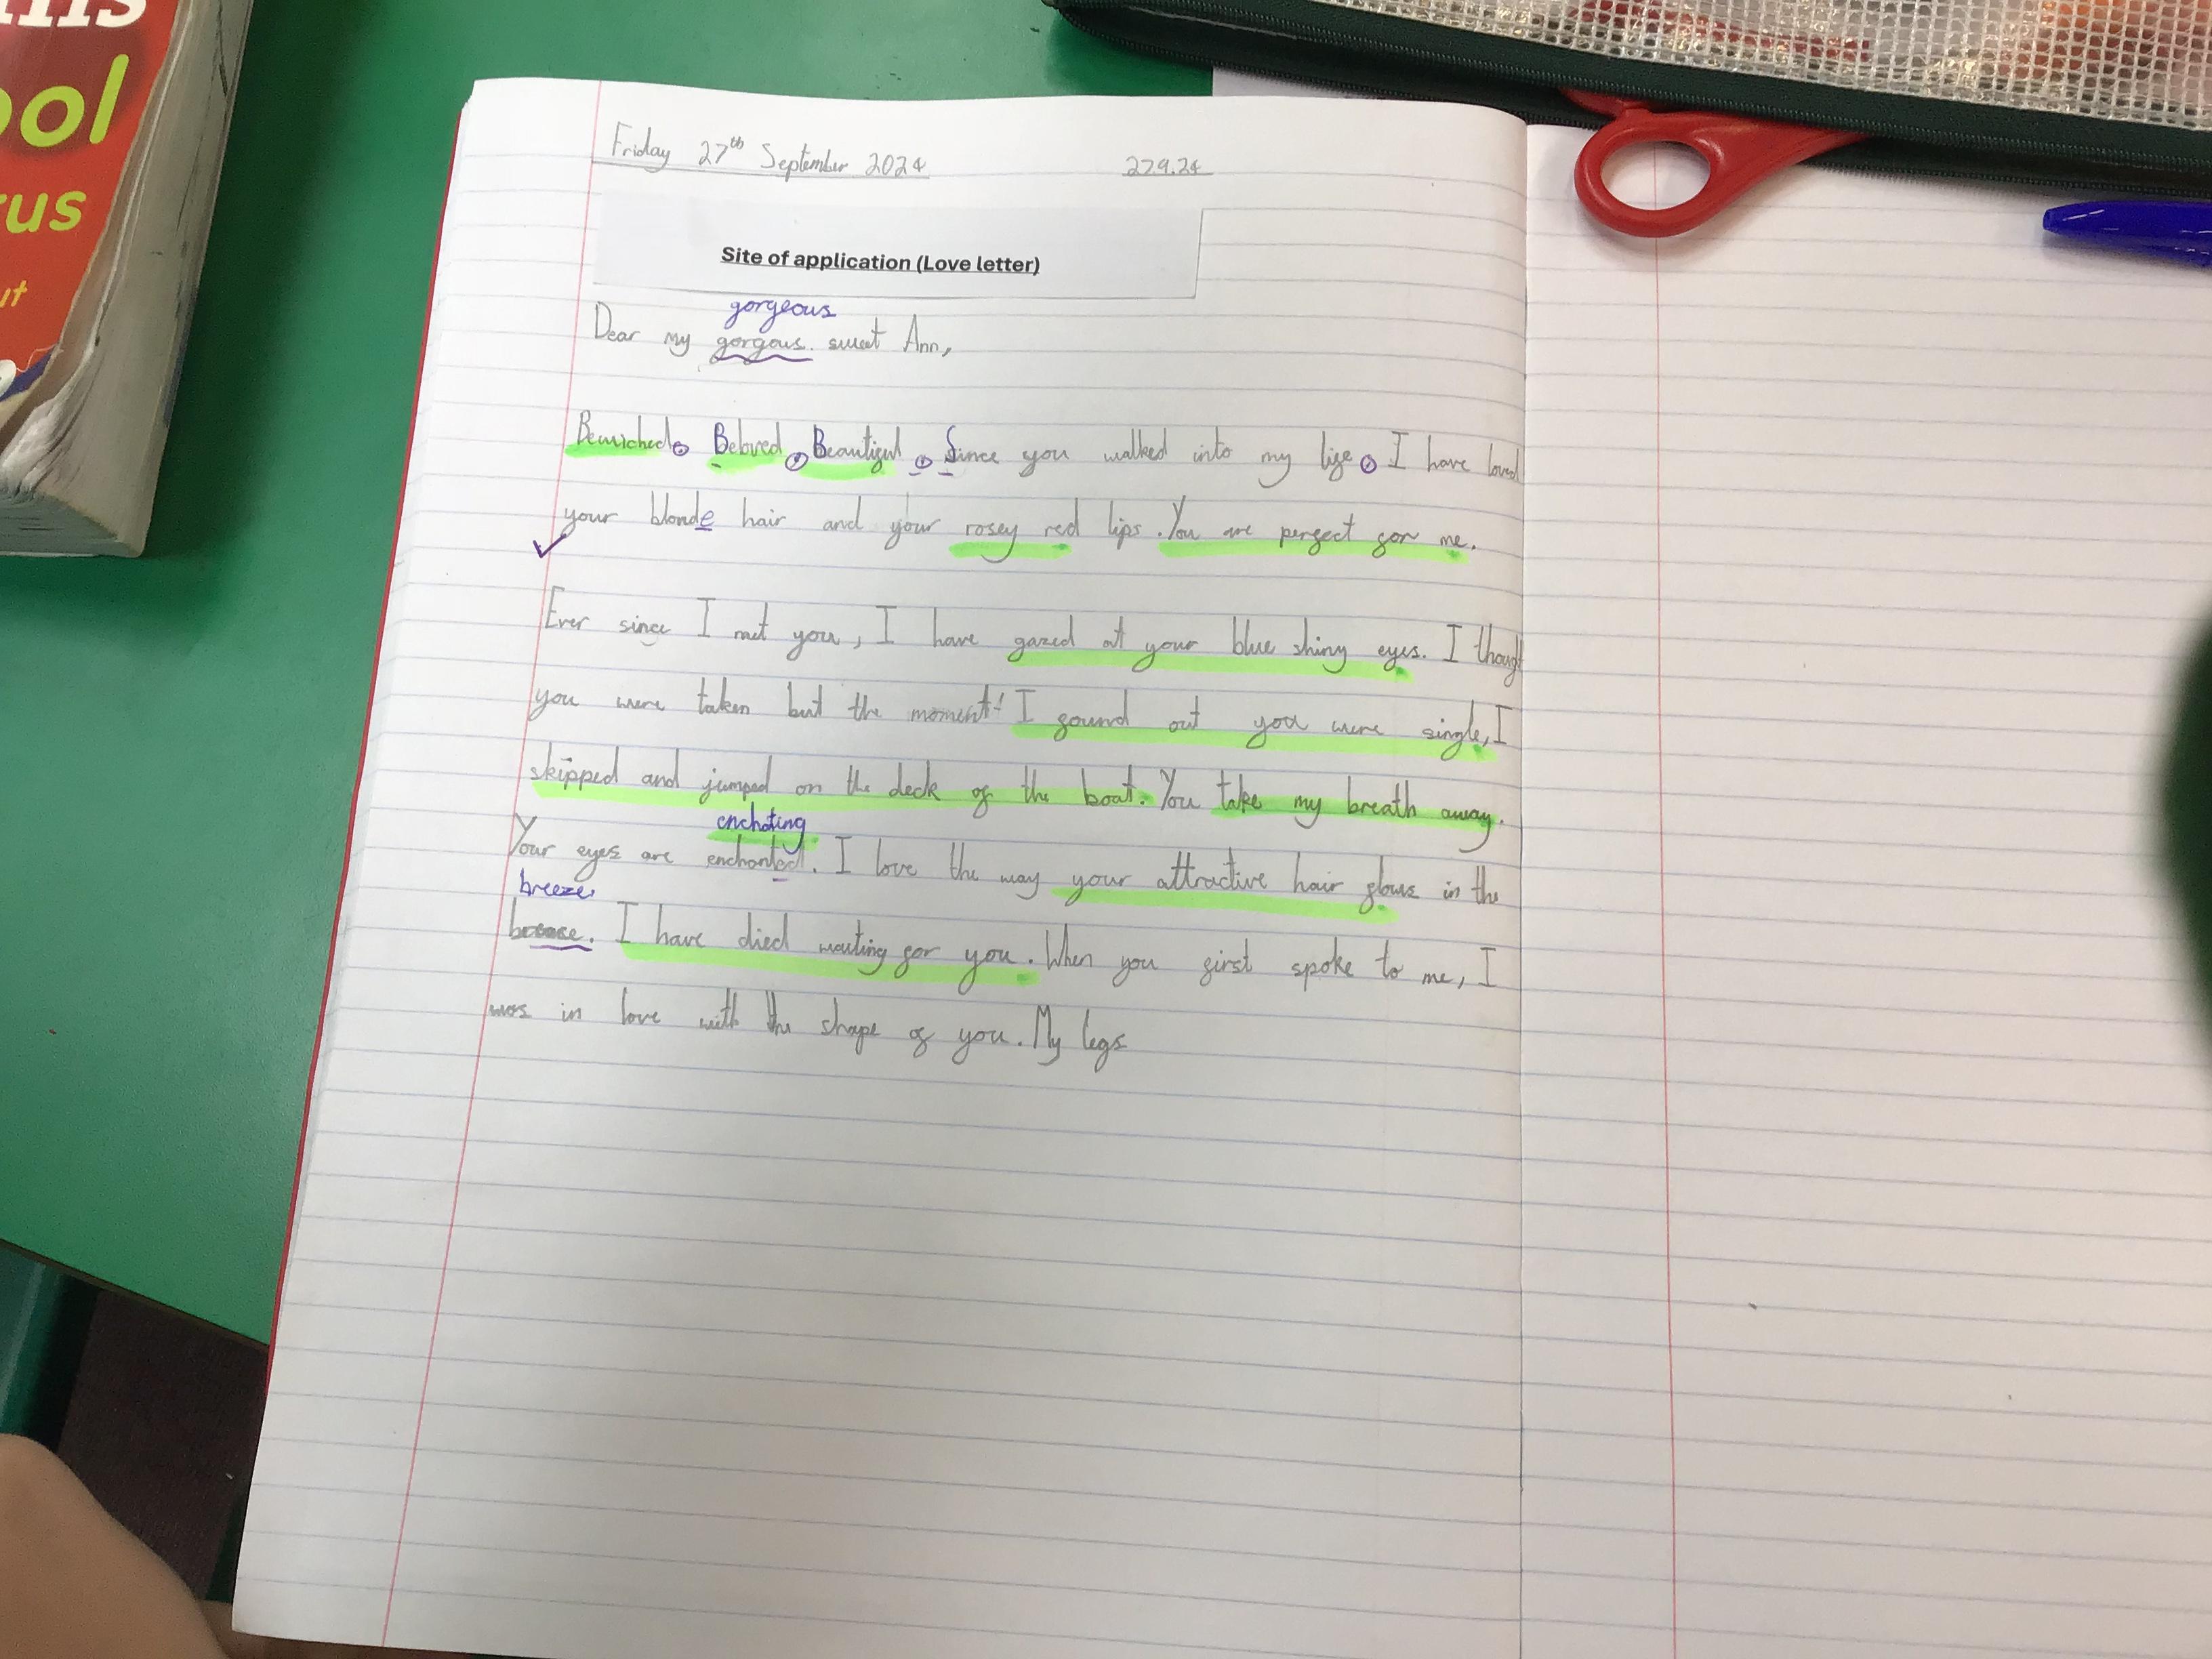 ool
rus
Friday 27th September 2024 27.9.24
Site of application (Love letter)
gorgeous
Dear my gorgous. sweet Ann,
Bewiched. Beloved, Beautiful. Since you walked into my life, I have loved
your blonde hair and your rosey red lips. You are perfect for me.
Ever since I met you, I have gazed at your blue shiny eyes. I though
you were taken but the moment I found out you were single, I
skipped and jumped on the deck of the boat. You take my breath away.
enchating
Your eyes are enchanted. I love the way your attractive hair glows in the
breeze.
I have died waiting for you. When you first spoke to me, I
was in love with the shape of you. My legs